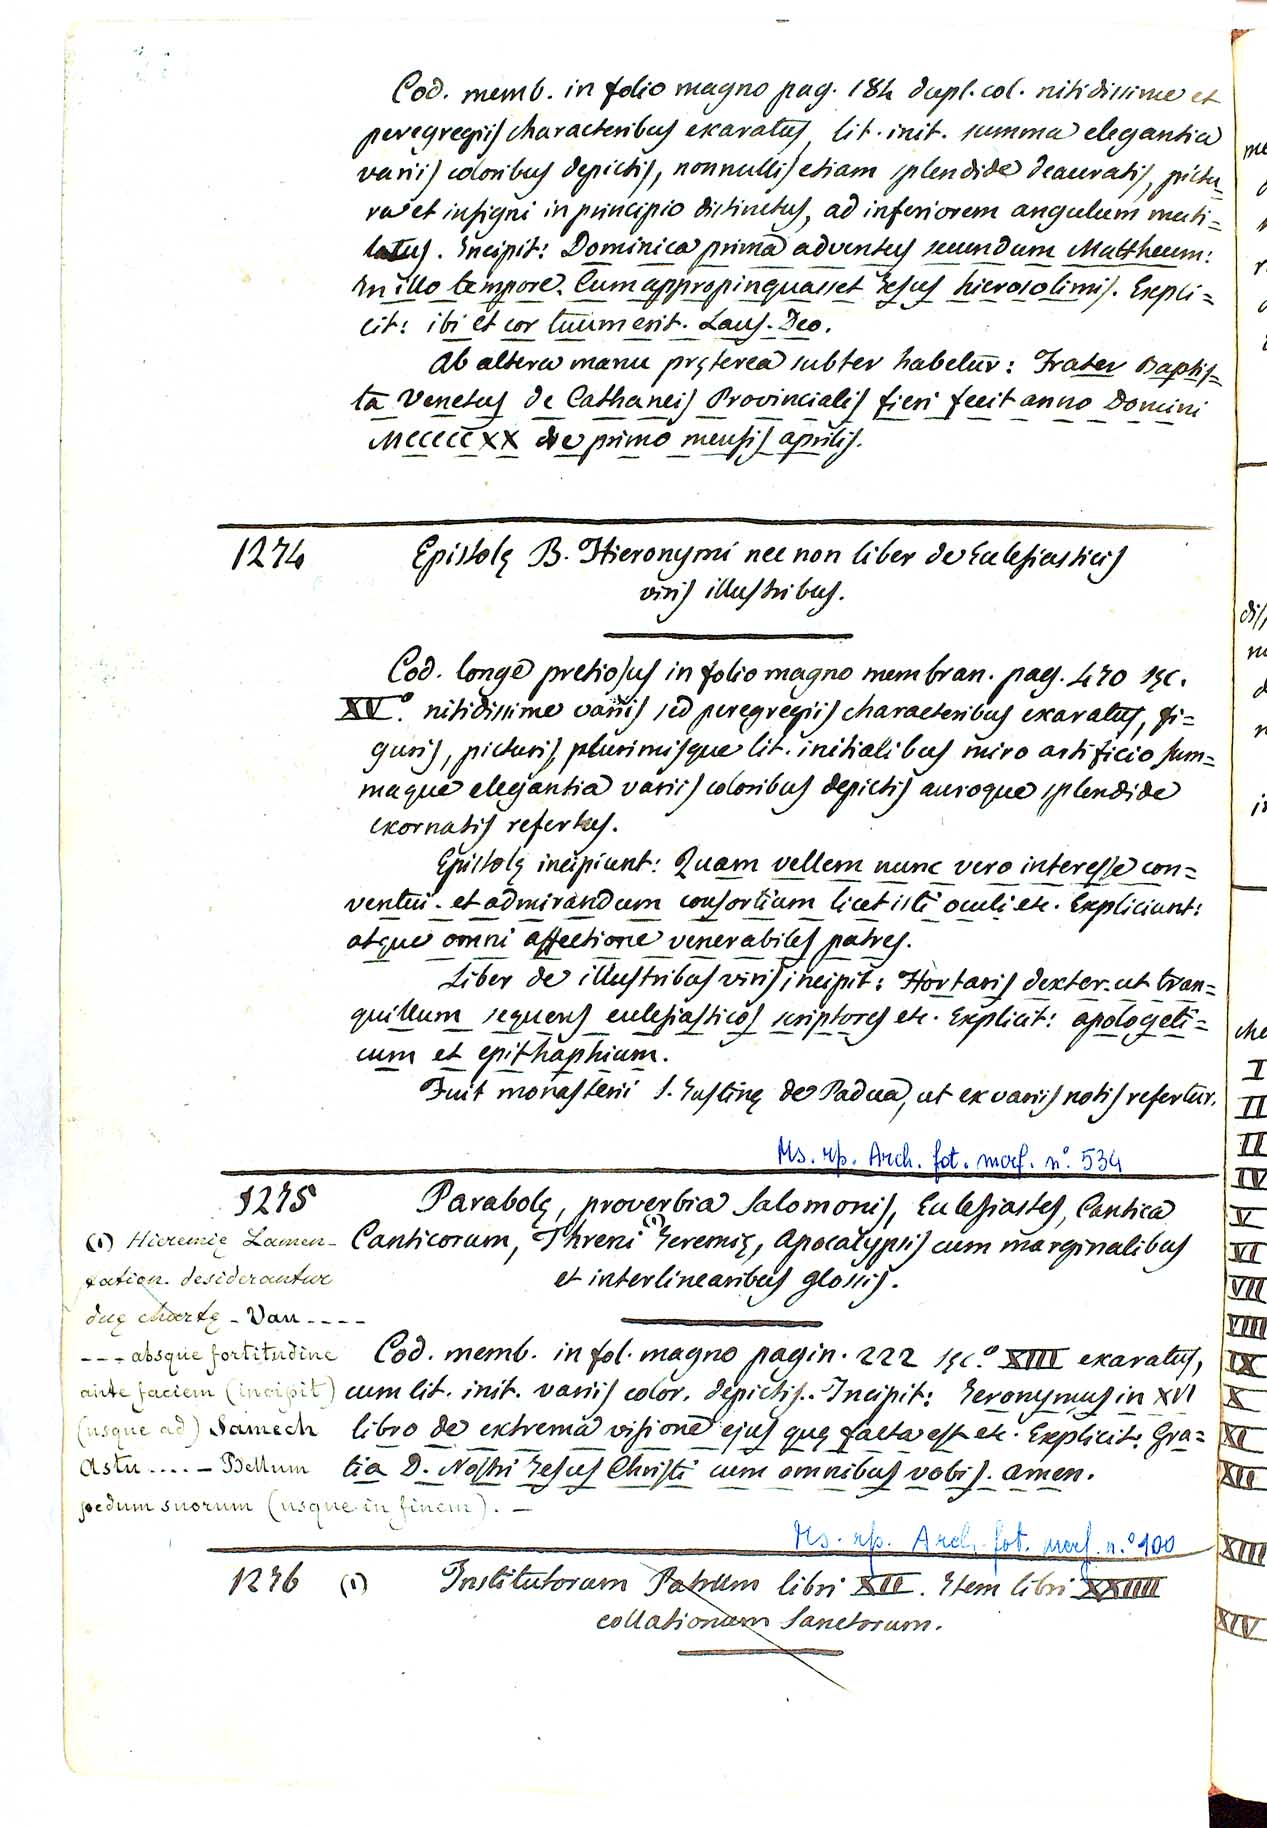 Cod. memb. in folio magno pag. 184 dupl. col. nitidissime et
peregregiis characteribus exaratus, lit. init. summa elegantia
variis coloribus depictis, nonnullis etiam splendide deauratis, pictu=
ra et insigni in principio distinctus, ad inferiorem angulum muti=
latus. Incipit: Dominica prima adventus secundum Mattheum:
In illo tempore. Cum appropinquasset Jesus hierosolimis. Expli=
cit: ibi et cor tuum erit. Laus. Deo.
Ab altera manu pręterea subter habetur: Frater Baptis=
ta Venetus de Cathaneis Provincialis fieri fecit anno Domini
MCCCCXX die primo mensis aprilis.
1274 Epistolę B. Hieronymi nec non liber de Ecclesiasticis
viris illustribus.
Cod. longe pretiosus in folio magno membran. pag. 470 sęc.
XV.° nitidissime variis sed peregregiis characteribus exaratus, fi=
guris, picturis, plurimisque lit. initialibus miro artificio sum=
maque elegantia variis coloribus depictis auroque splendide
exornatis refertus.
Epistolę incipiunt: Quam vellem nunc vero interesse con=
ventui. et admirandum consortium licet isti oculi etc. Expliciunt:
atque omni affectione venerabiles patres.
Liber de illustribus viris incipit: Hortaris dexter. ut tran=
quillum sequens ecclesiasticos scriptores etc. Explicit: apologeti=
cum et epithaphium.
Fuit monasterii S. Justinę de Padua, ut ex variis notis refertur.
Ms. rp. Arch. fot. morf. n.° 534
1275 Parabolę, proverbia Salomonis, Ecclesiastes, Cantica
Canticorum, Threni (1) Jeremię, Apocalypsis cum marginalibus
et interlinearibus glossis.
(1) Hieremię Lamen-
tation. desiderantur
duę chartę - Vau ----
--- absque fortitudine
ante faciem (incipit)
(usque ad) Samech
Astu .... - Bellum
pedum suorum (usque in finem). -
Cod. memb. in fol. magno pagin. 222 sęc.° XIII exaratus,
cum lit. init. variis color. depictis. Incipit: Jeronymus in XVI
libro de extrema visione ejus quę facta est etc. Explicit: Gra=
tia D. Nostri Jesus Christi cum omnibus vobis. amen.
Ms. rp. Arch. fot. morf. n.° 100
1276 (1) Institutorum Patrum libri XII. Item libri XXIIII
collationum Sanctorum.
I
II
III
IV
V
VI
VII
VIII
IX
X
XI
XII
XIII
XIV